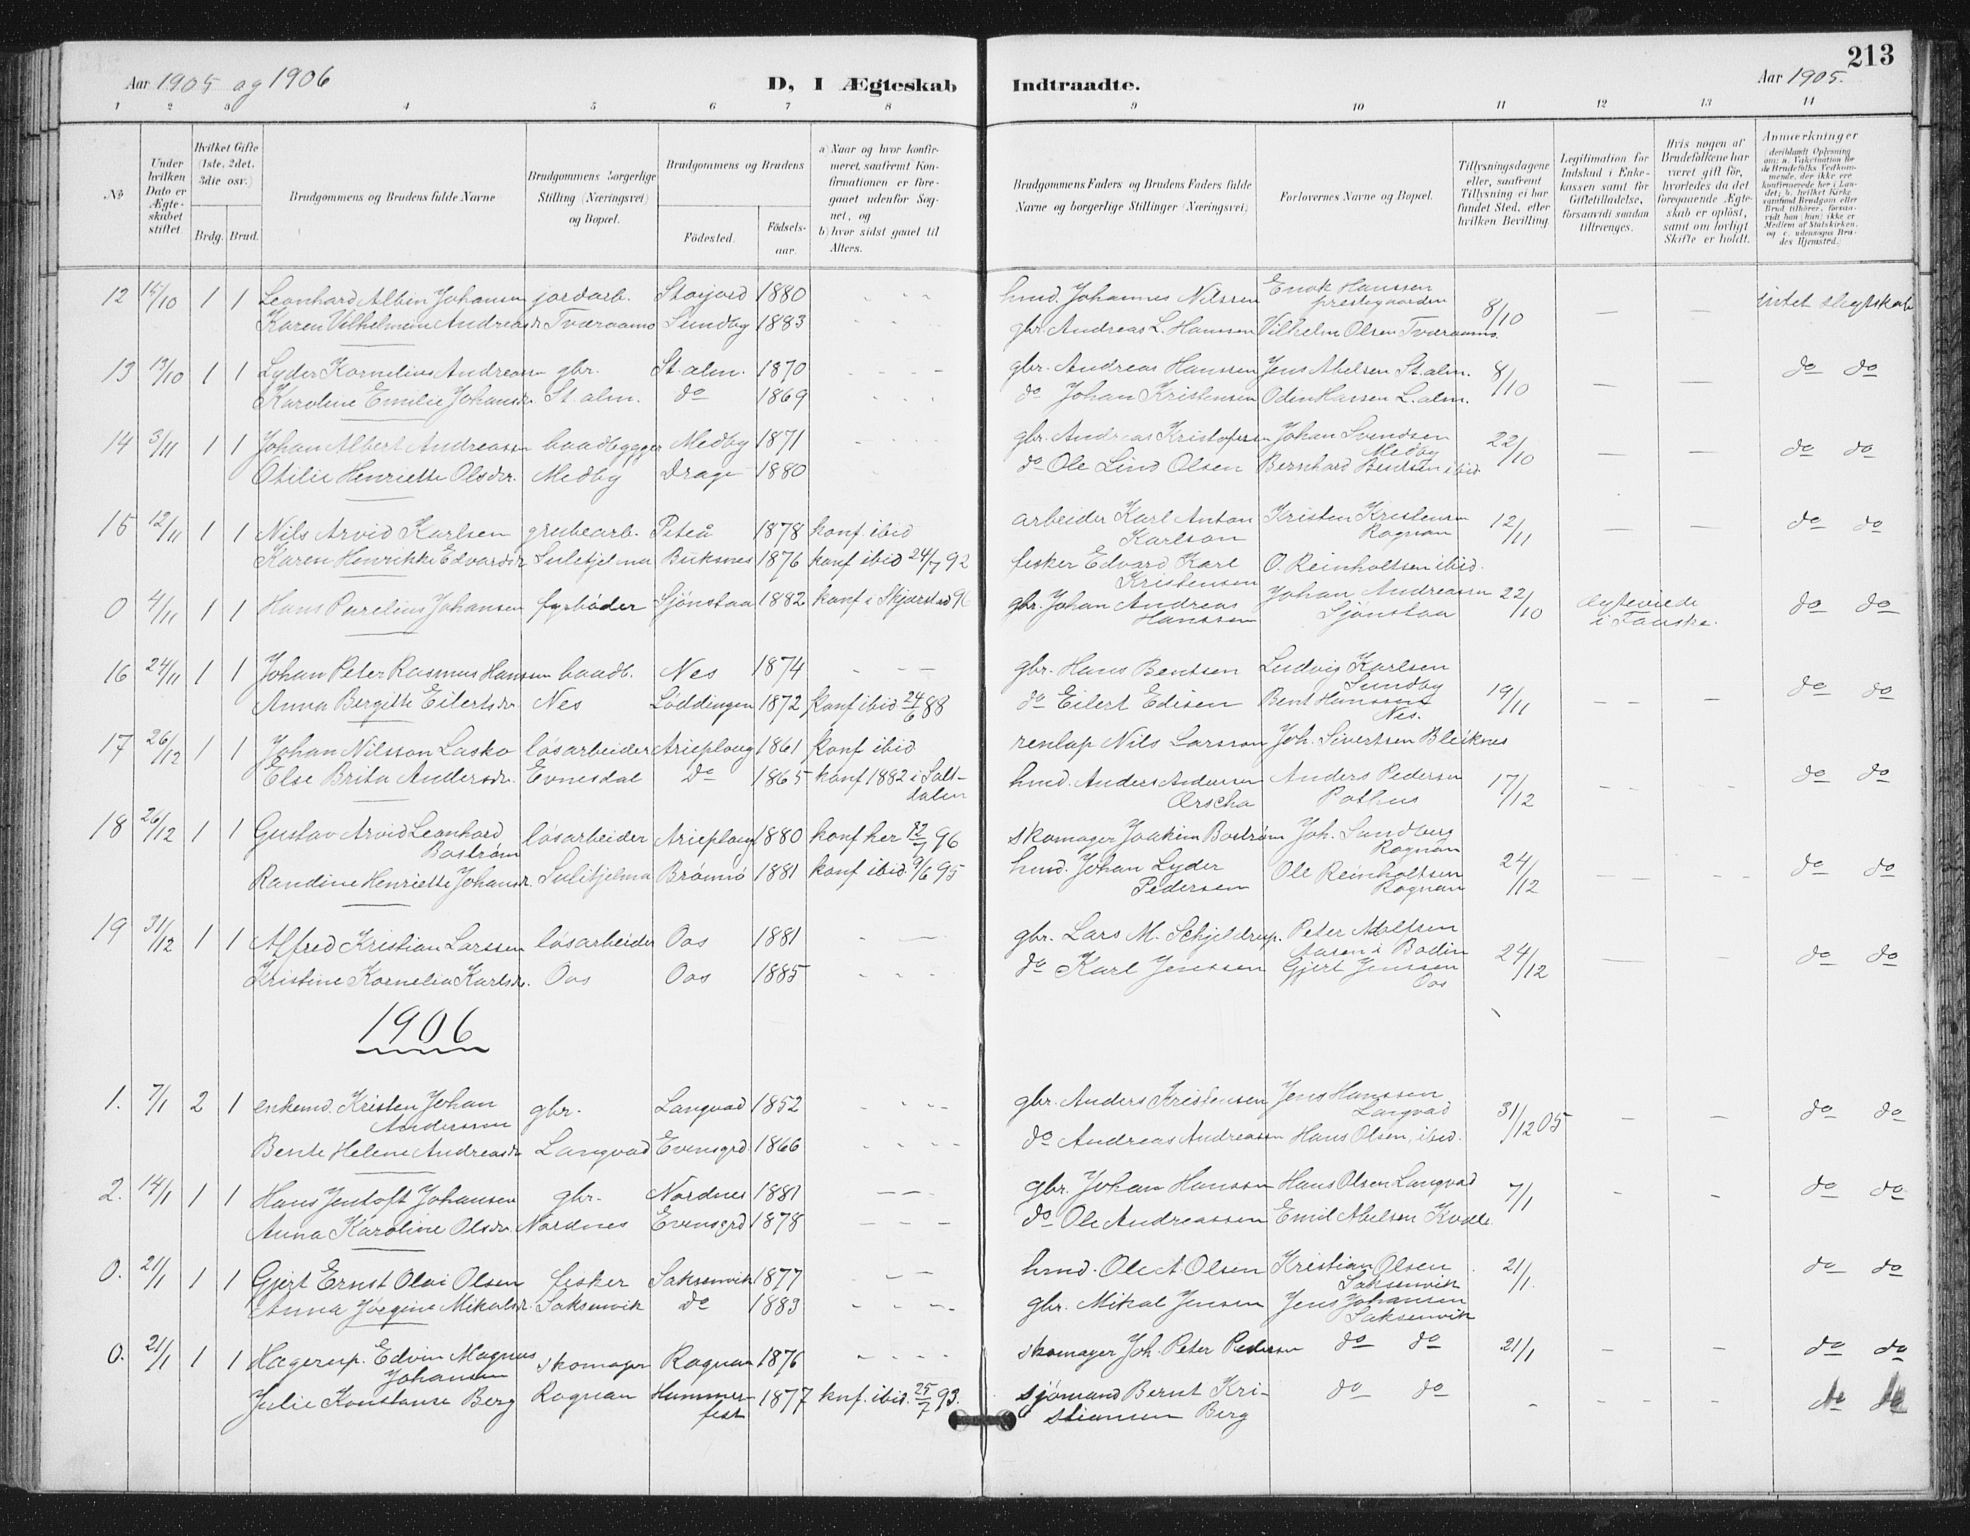 213
Aar 1905 og 1906 D, I Ægteskab Indtraadte. Aar 1905.
1 2 3 4 5 6 7 8 9 10 11 12 13 14
No
Under hvilken Dato er Ægteskabet stiftet.
Hvilket Gifte (1ste, 2det, 3die osv.)
Brdg. Brud.
Brudgommens og Brudens fulde Navne
Brudgommens borgerlige Stilling (Næringsvei) og Bopæl.
Brudgommens og Brudens
Fødested. Fødselsaar.
a) Naar og hvor konfirmeret, saafremt Konfirmationen er foregaaet udenfor Sognet, og
b) hvor sidst gaaet til Alters.
Brudgommens Faders og Brudens Faders fulde Navne og borgerlige Stillinger (Næringsvei)
Forlovernes Navne og Bopæl.
Tillysningsdagene eller, saafremt Tillysning ei har fundet Sted, efter hvilken Bevilling.
Legitimation for Indskud i Enkekassen samt for Giftetilladelse, forsaavidt saadan tiltrænges.
Hvis nogen af Brudefolkene har været gift før, hvorledes da det foregaaende Ægteskab er opløst, samt om lovligt Skifte er holdt.
Anmærkninger
12 15/10 1 1 Leonhard Albin Johansen jordarb. Storjord 1880 hmd. Johannes Nilssen Enok Hanssen prestegaarden 8/10 intet slegtskab
Karen Vilhelmine Andreasdr. Tveraamo Sundby 1883 gbr. Andreas L. Hanssen Vilhelm Olsen Tveraamo.
13 13/10 1 1 Lyder Kornelius Andreasen gbr. St. alm. 1870 gbr. Andreas Hanssen Jens Abelsen St. alm. 8/10 do do
Karoline Emilie Johansdr. St. alm. do 1869 do Johan Kristensen Oden Hansen L. alm.
14 3/11 1 1 Johan Albert Andreassen baadbygger Medby 1871 gbr. Andreas Kristofersen Johan Svendsen Medby 22/10 do do
Otilie Henriette Olsdr. Medby Drage 1880 do Ole Lind Olsen Bernhard Bentsen ibid
15 12/11 1 1 Nils Arvid Karlsen grubearb. Piteå 1878 konf. ibid arbeider Karl Anton Karlson Kristen Kristensen Rognan 12/11 do do
Karen Henrikke Edvardsdr Sulitjelma Buksnes 1876 konf ibid 24/7 92 fisker Edvard Karl Kristensen O. Reinholtsen ibid.
0 4/11 1 1 Hans Parelius Johansen fyrbøder Sjønstaa 1882 konf i Skjerstad 96 gbr. Johan Andreas Hanssen Johan Andreassen Sjønstaa 22/10 ægteviede i Fauske. do do
16 24/11 1 1 Johan Peter Rasmus Hansen baadb. Nes 1874 gbr. Hans Bentsen Ludvig Karlsen Sundby 19/11 do do
Anna Bergitte Eilertsdr. Nes Loddingen 1872 konf ibid 24/6 88 do Eilert Edisen Bent Hanssen Nes.
17 26/12 1 1 Johan Nilsson Lasko løsarbeider Arieploug 1861 konf ibid renlap Nils Larsson Joh. Sivertsen Bleiknes 17/12 do do
Else Brita Andersdr. Evnesdal do 1865 konf 1882 i Saltdalen hmd. Anders Andersen Anders Pedersen Pothus
18 26/12 1 1 Gustav Arvid Leonhard Bostrøm løsarbeider Arieploug 1880 konf her 12/7 96 skomager Joakim Bostrøm Joh. Sundberg Rognan 24/12 do do
Randine Henriette Johansdr. Sulitjelma Brønnø 1881 konf ibid. 9/6 95 hmd. Johan Lyder Pedersen Ole Reinholtsen Rognan
19 31/12 1 1 Alfred Kristian Larssen løsarbeider Oos 1881 gbr. Lars M. Schjeldrup. Peter Adolfsen Aasen i Bodin 24/12 do do
Kristine Kornelia Karlsdr. Oos Oos 1885 do Karl Jenssen Gjert Jenssen Oos
1906
1. 7/1 2 1 enkemd. Kristen Johan Anderssen gbr. Langvad 1852 gbr. Anders Kristensen Jens Hanssen Langvad 31/12 05 do do
Bente Helene Andreasdr Langvad Evensgrd 1866 do Andreas Andreassen Hans Olsen, ibid.
2. 14/1 1 1 Hans Jentoft Johansen gbr. Nordnes 1881 gbr. Johan Hanssen Hans Olsen Langvad 7/1 do do
Anna Karoline Olsdr. Nordnes Evensgrd 1878 do Ole Andreassen Emil Abelsen Kvæle
0. 21/1 1 1 Gjert Ernst Olai Olsen fisker Saksenvik 1877 hmd. Ole A. Olsen Kristian Olsen Saksenvik 21/1. do do
Anna Jørgine Mikalsdr. Saksenvik do 1883 gbr. Mikal Jensen Jens Johansen Saksenvik
0. 21/1 1 1 Hagerup Edvin Magnus Johansen skomager Rognan 1876 skomager Joh. Peter Pedersen do do 21/1 do do
Julie Konstanse Berg Rognan Hammerfest 1877 knf. ibid. 25/7 93. sjømand Bernt Kristiansen Berg do do do do